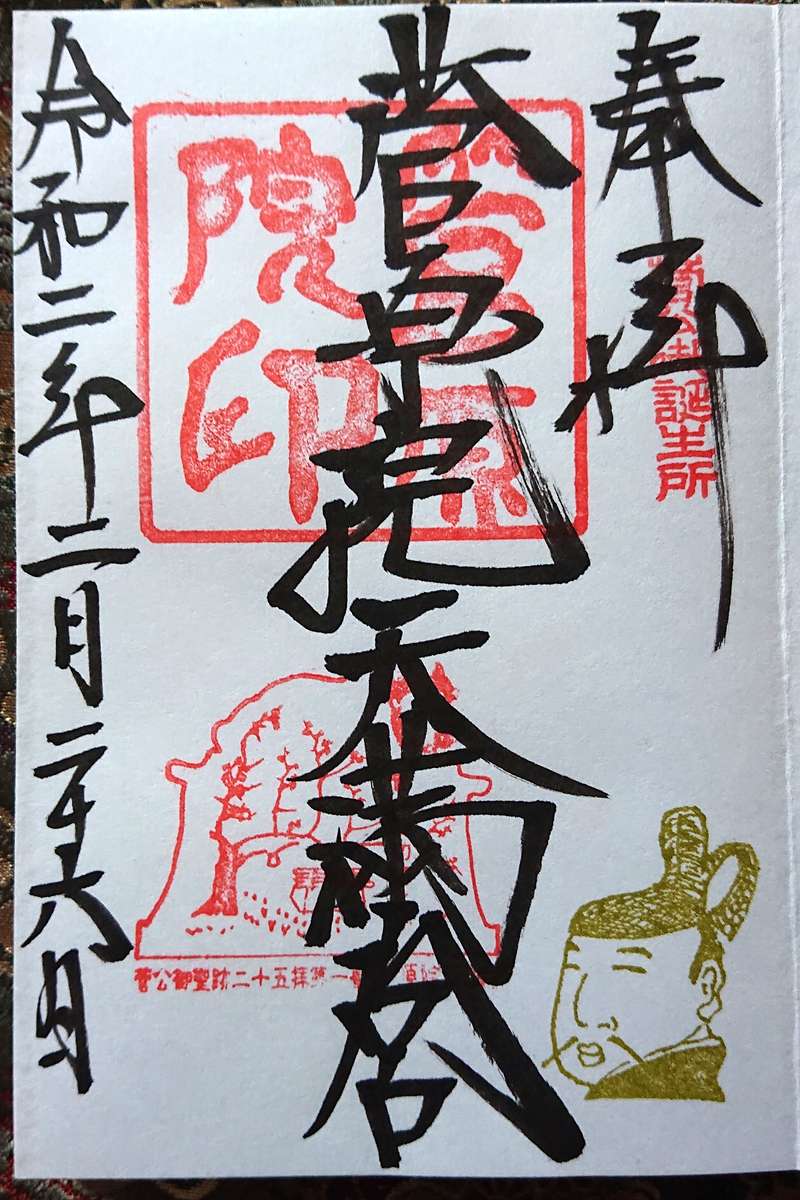 奉拝
菅公御誕生所
菅原院天満宮
菅原院印
菅公御聖跡二十五拝第一番
令和二年二月二十六日